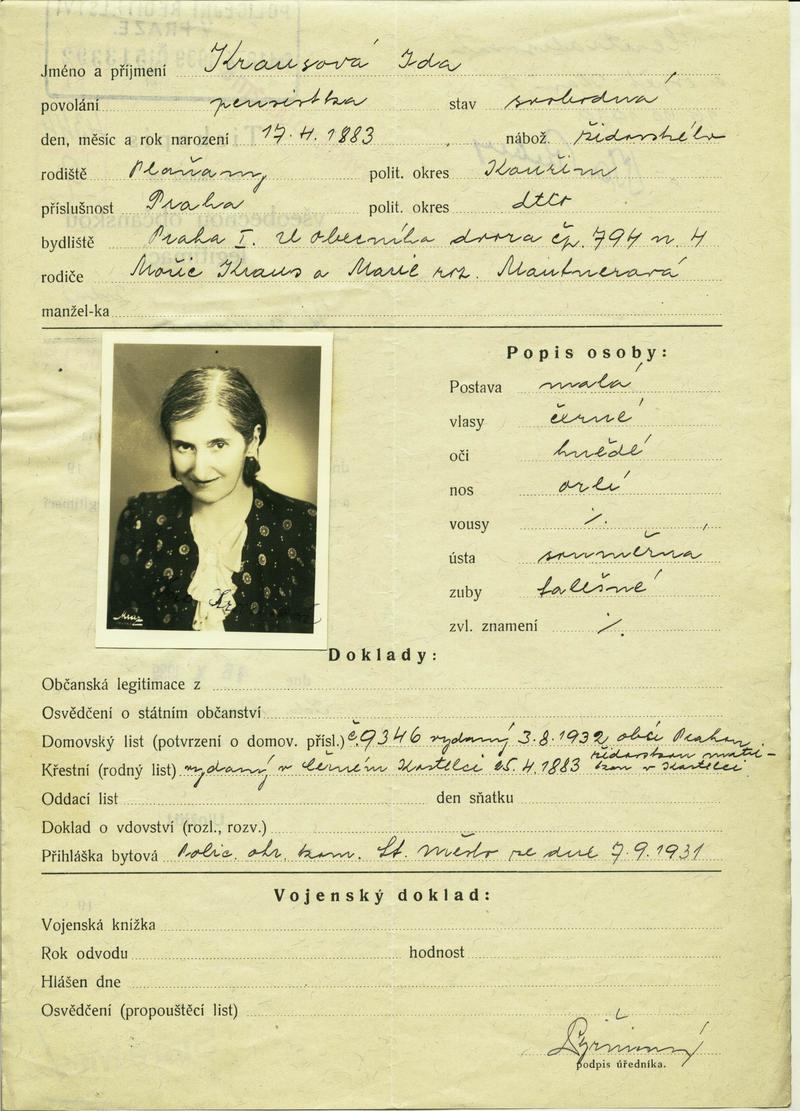 Jméno a příjmení Krausová Ida
povolání pensistka stav svobodná
den, měsíc a rok narození 17.4.1883 nábož. židovského
rodiště Plaňany polit. okres Kouřim
příslušnost Praha polit. okres dtto
bydliště Praha I. U Obecního dvora čp. 794 n. 4
rodiče Mořic Kraus a Marie roz. Mautnerová
manžel-ka
Popis osoby:
Postava malá
vlasy černé
oči hnědé
nos orlí
vousy /.
ústa souměrna
zuby falešné
zvl. znamení /.
Doklady:
Občanská legitimace z
Osvědčení o státním občanství
Domovský list (potvrzení o domov. přísl.) č. 9346 vydaný 3.8.1932 obcí Prahou
Křestní (rodný list) vydaný v Černém Kostelci 25.4.1883 židovskou matri-
kou v Kostelci
Oddací list den sňatku
Doklad o vdovství (rozl., rozv.)
Přihláška bytová Polic. obv. kom. St. Město ze dne 7.9.1931
Vojenský doklad:
Vojenská knížka
Rok odvodu hodnost
Hlášen dne
Osvědčení (propouštěcí list)
podpis úředníka.